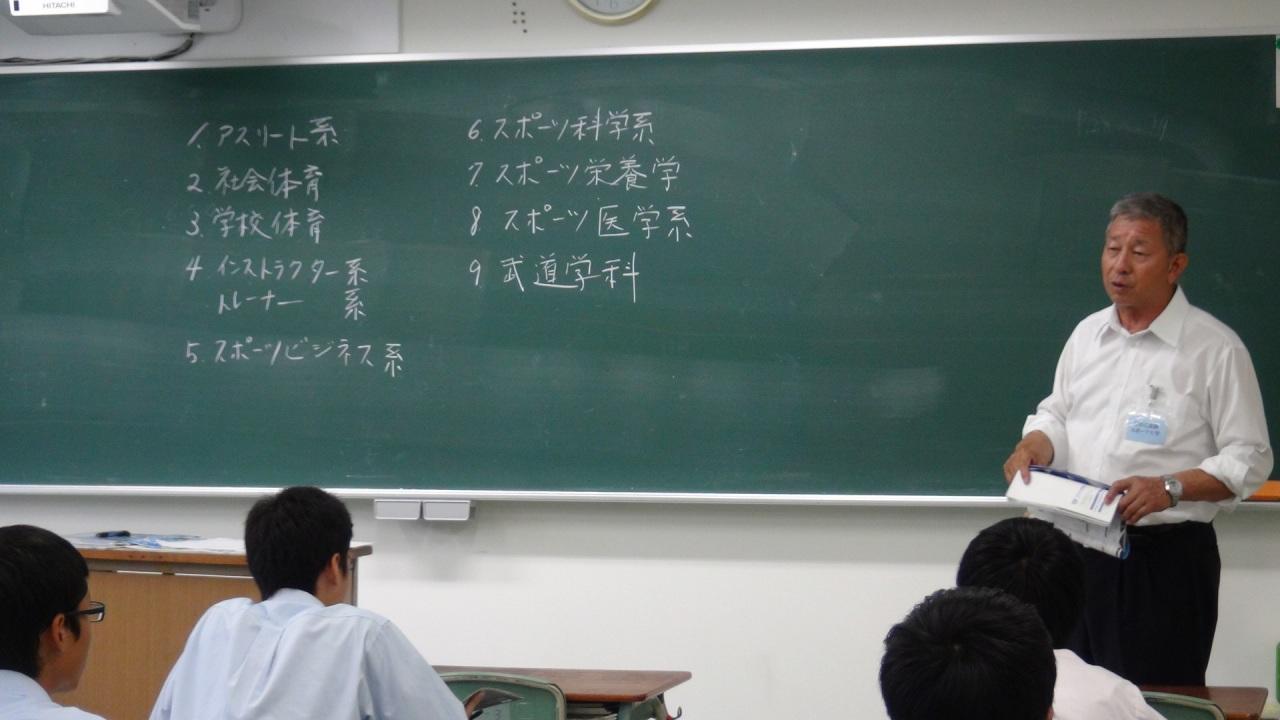 HITACHI
1. アスリート系
2. 社会体育
3. 学校体育
4 インストラクター系
トレーナー 系
5. スポーツビジネス系
6. スポーツ科学系
7. スポーツ栄養学
8 スポーツ医学系
9 武道学科